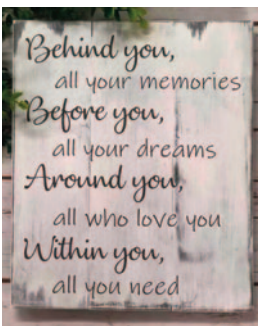 Behind you,
all your memories
Before you,
all your dreams
Around you,
all who love you
Within you,
all you need